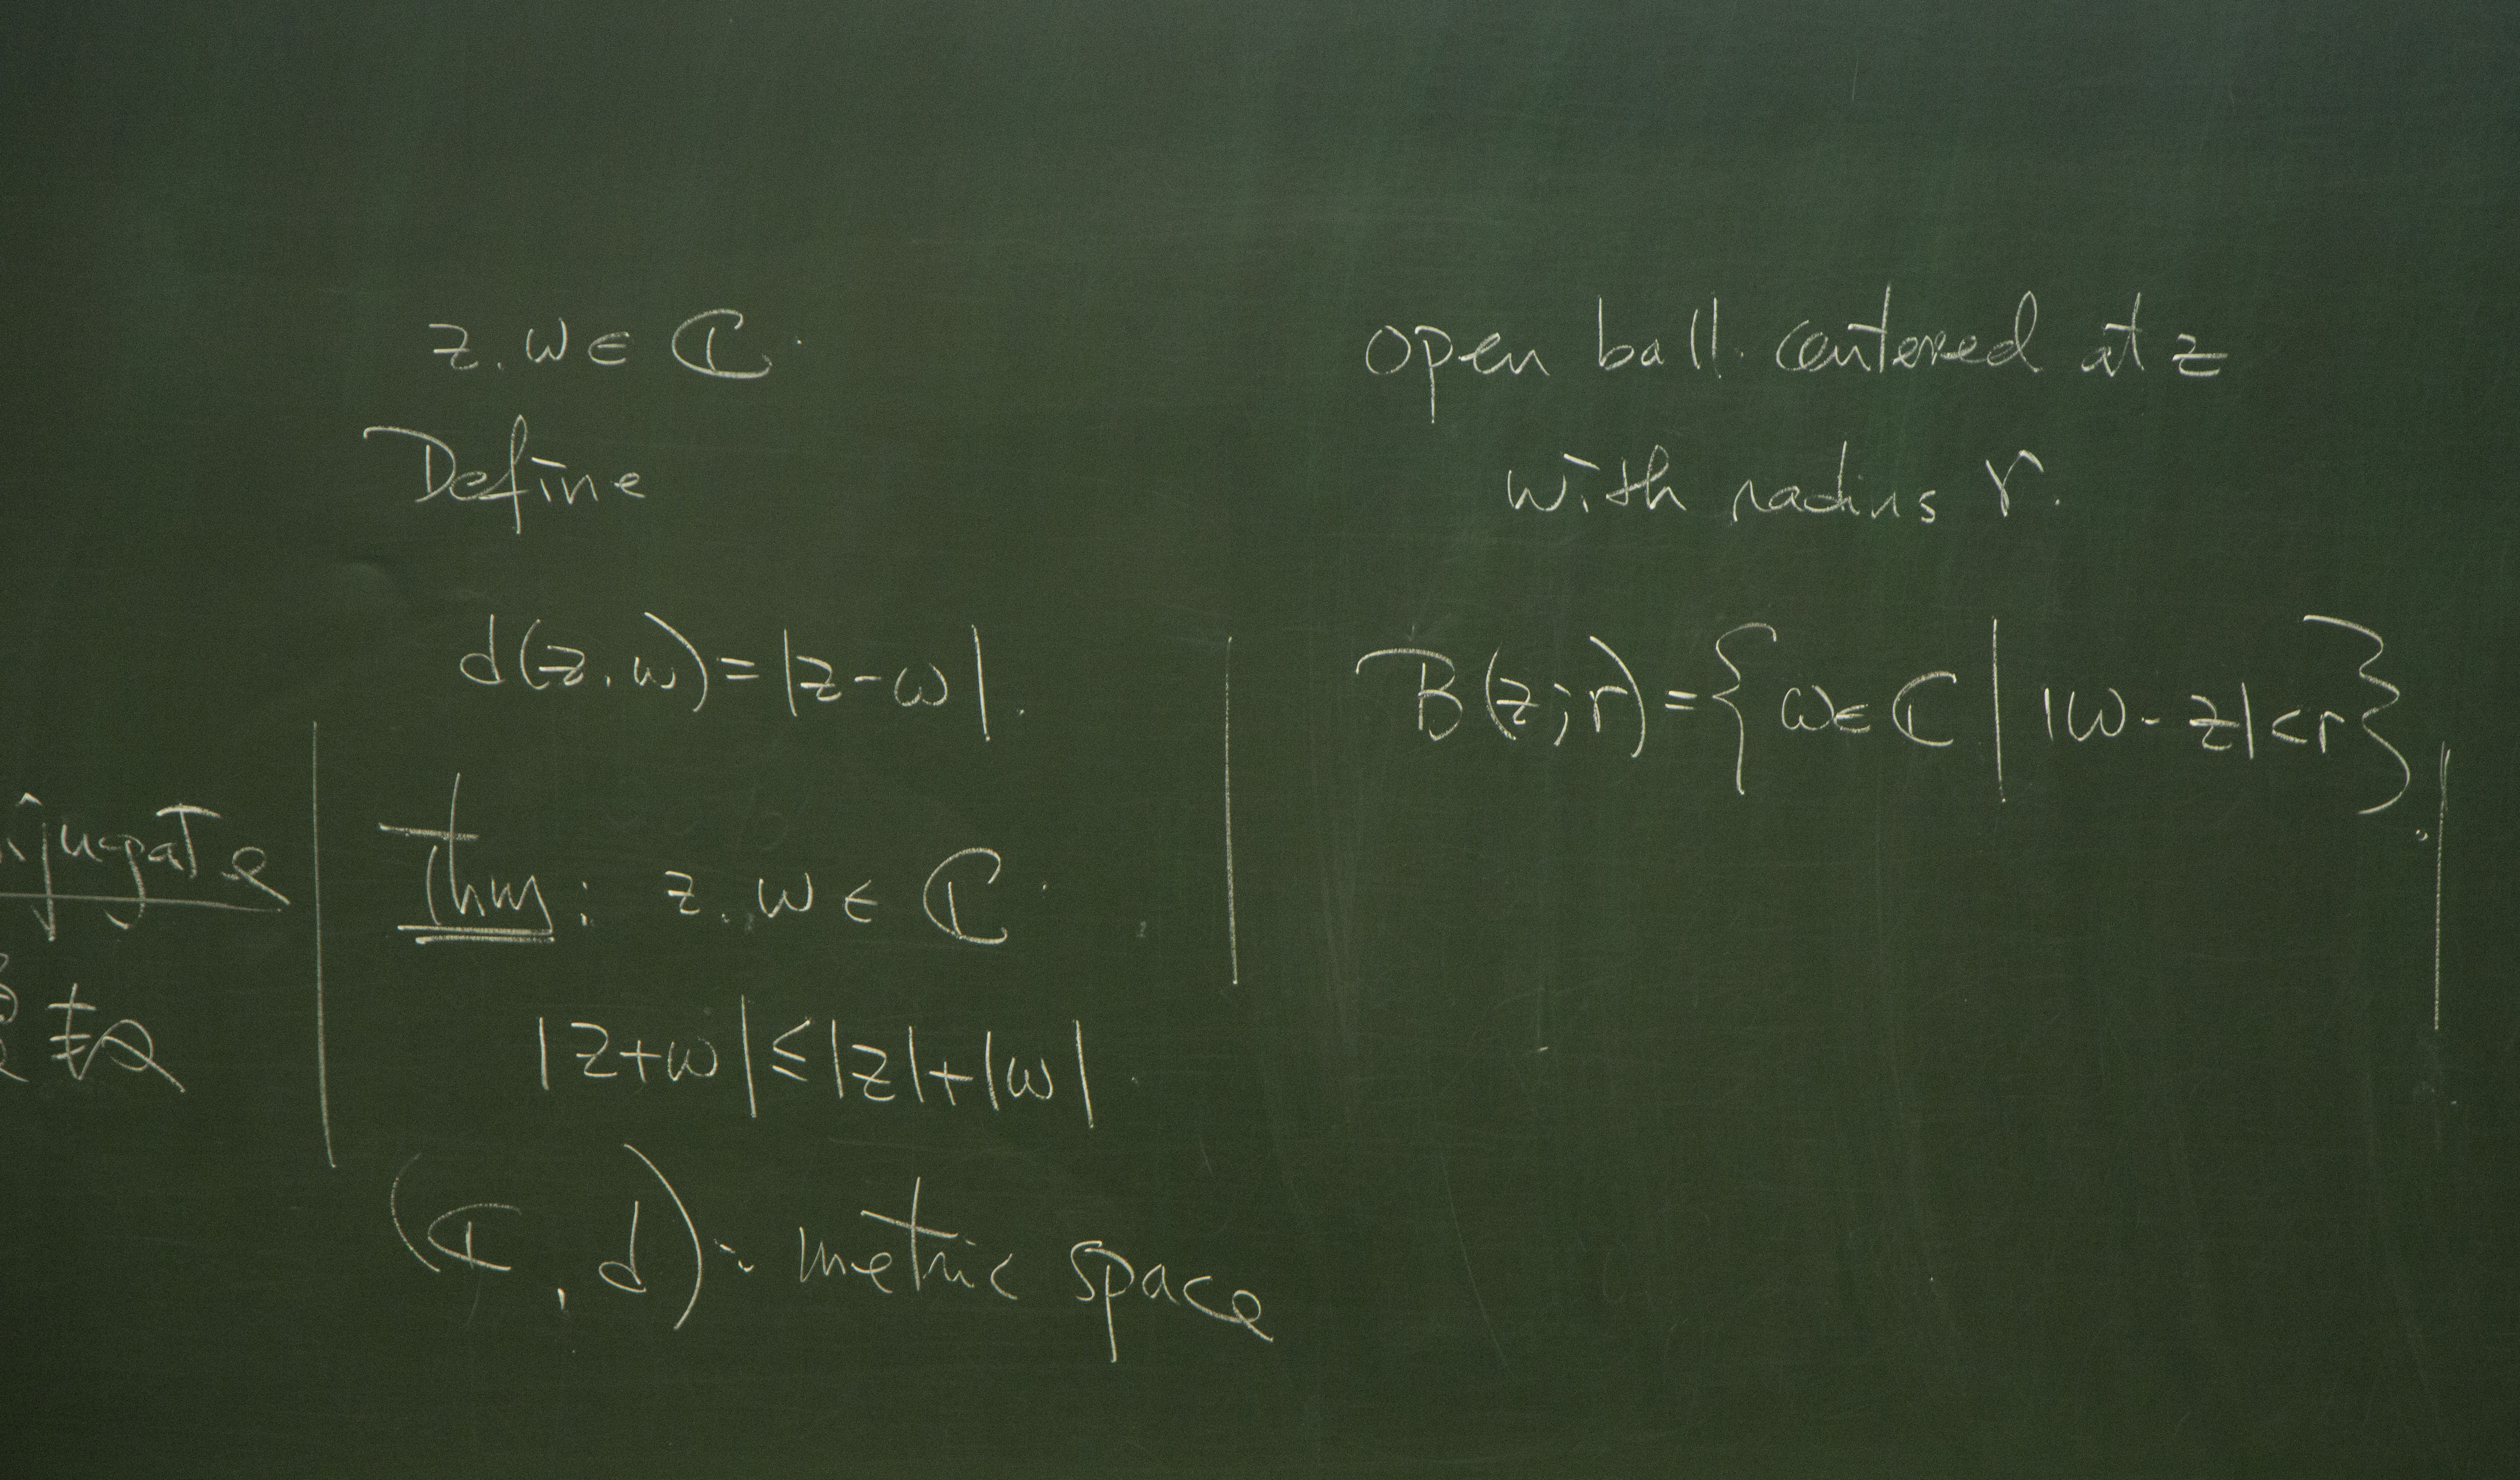 z, w ∈ ℂ.
Define
d(z, w) = |z - w|.
Thm: z, w ∈ ℂ.
|z + w| ≤ |z| + |w|.
(ℂ, d) : metric space
open ball centered at z
with radius r.
B(z; r) = { w ∈ ℂ | |w - z| < r }.